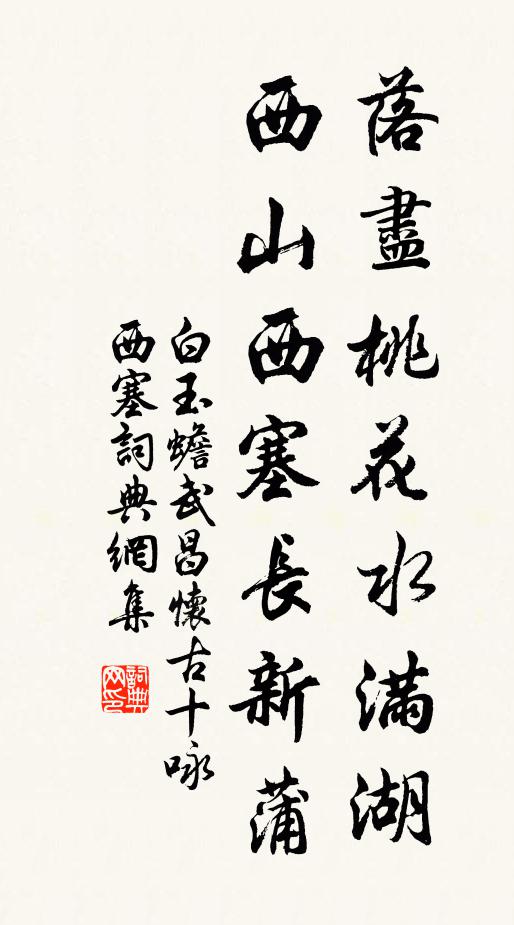 落盡桃花水滿湖
西山西塞長新蒲
白玉蟾武昌懷古十咏
西塞詞典網集
詞典網印